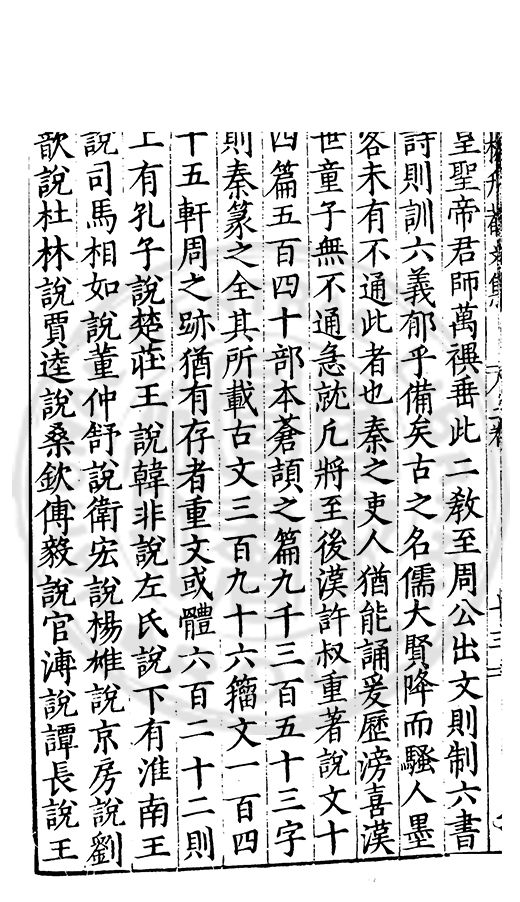 皇聖帝君師萬禩垂此二教至周公出文則制六書
詩則訓六義郁乎備矣古之名儒大賢降而騷人墨
客未有不通此者也秦之吏人猶能誦爰歷滂喜漢
世童子無不通急就凡將至後漢許叔重著說文十
四篇五百四十部本蒼頡之篇九千三百五十三字
則秦篆之全其所載古文三百九十六籀文一百四
十五軒周之跡猶有存者重文或體六百二十二則
上有孔子說楚莊王說韓非說左氏說下有淮南王
說司馬相如說董仲舒說衛宏說楊雄說京房說劉
歆說杜林說賈逵說桑欽傅毅說官溥說譚長說王